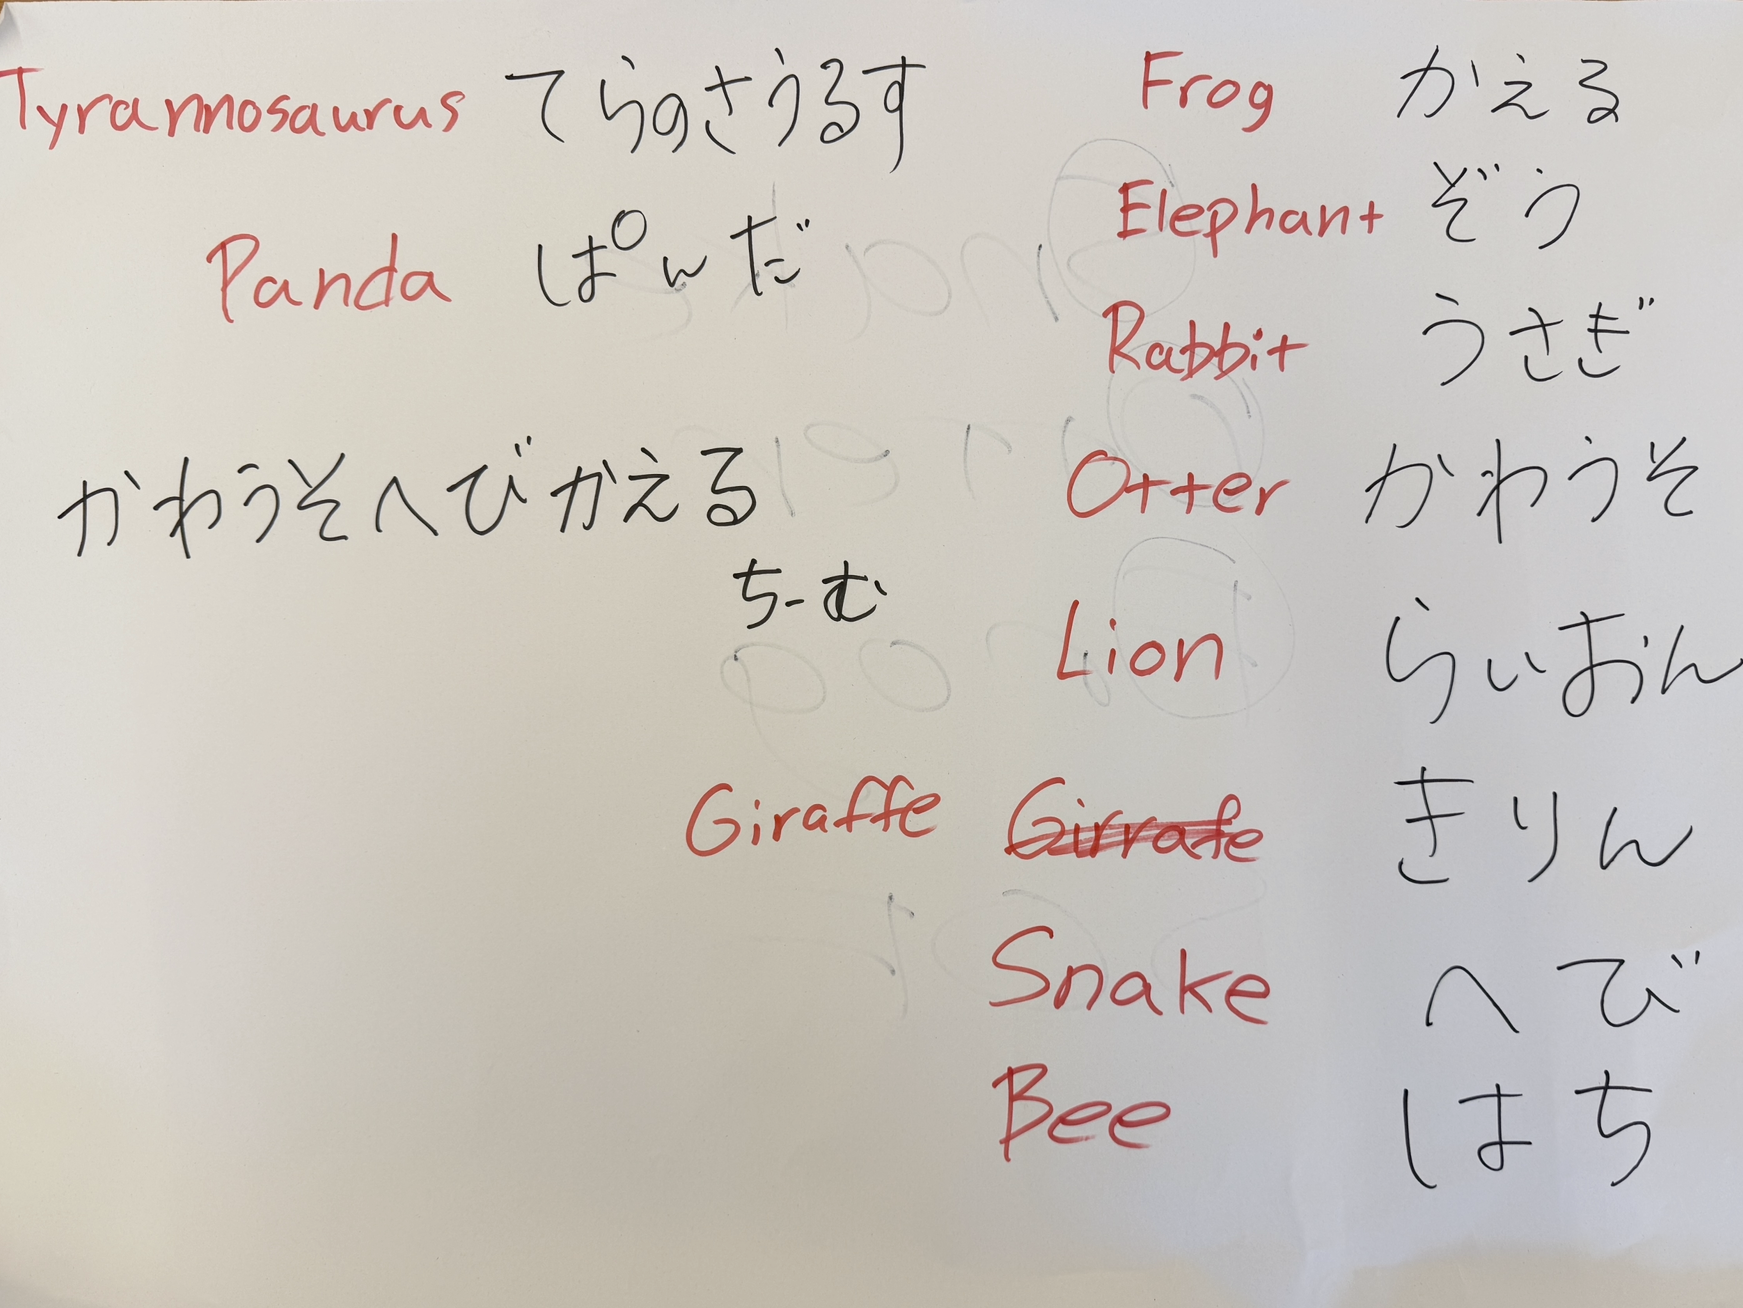 Tyrannosaurus てらのさうるす
Panda ぱんだ
かわうそへびかえる
ちーむ
Frog かえる
Elephant ぞう
Rabbit うさぎ
Otter かわうそ
Lion らいおん
Giraffe Girrafe きりん
Snake へび
Bee はち